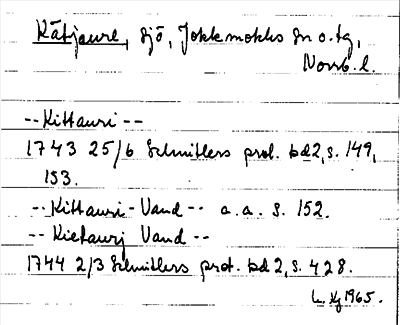 Kätjaure, sjö, Jokkmokks sn o. tg,
Norrb. l.
-- Kittauri --
1743 25/6 Schnitlers prot. bd 2, s. 149,
153.
-- Kittauri-Vand -- a.a. s. 152.
-- Kietaurj Vand --
1744 2/3 Schnitlers prot. bd 2, s. 428.
1965.